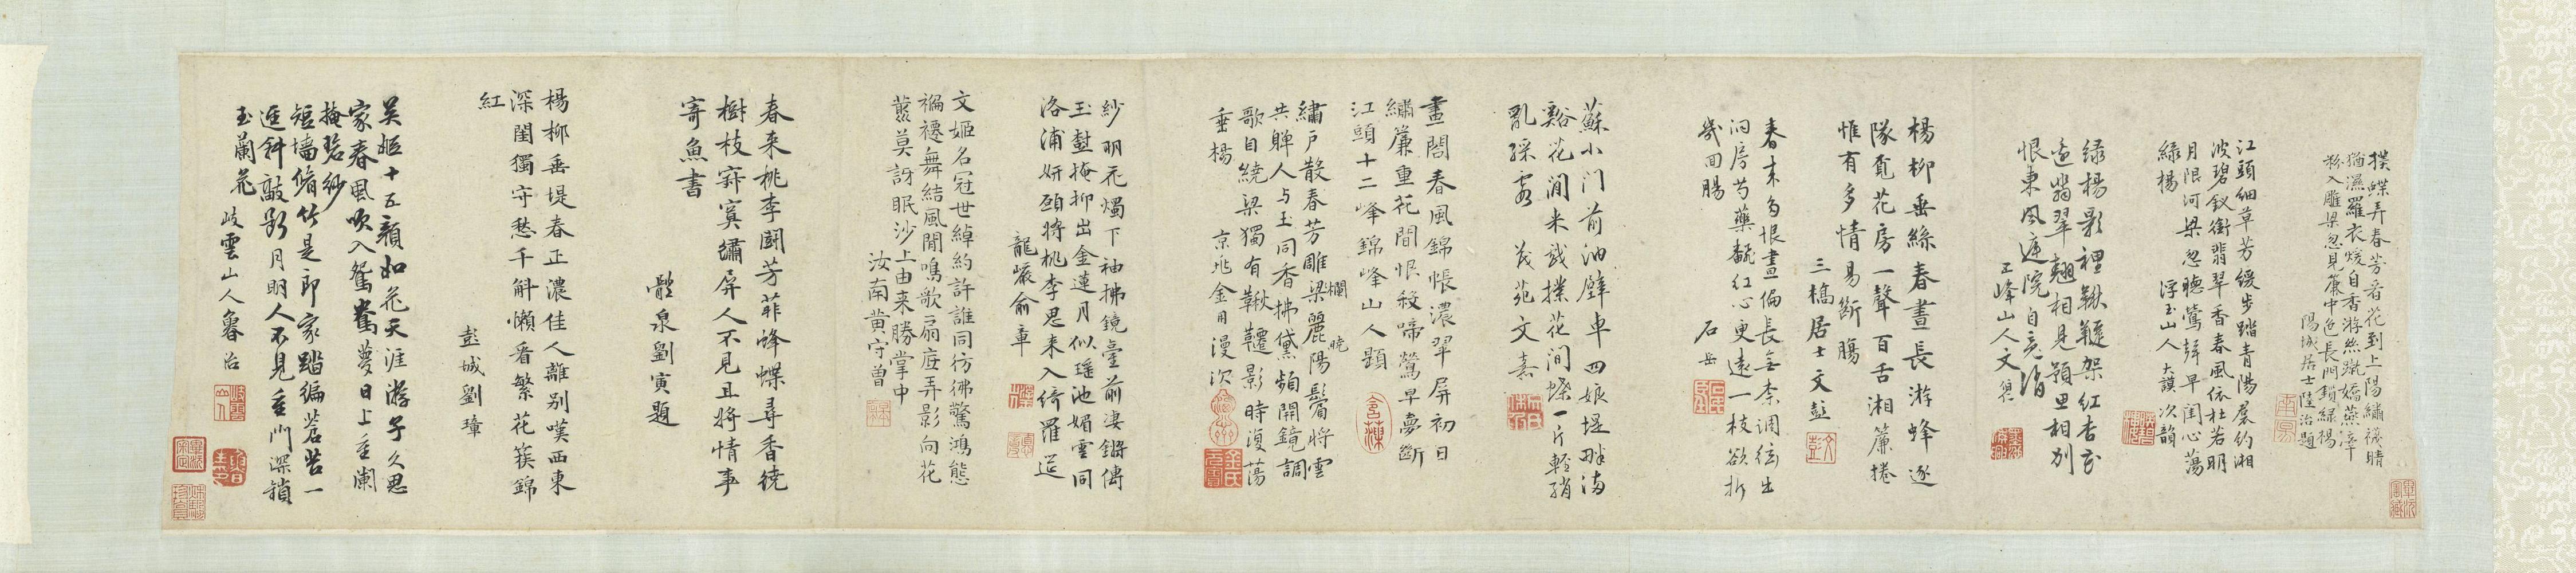 撲蝶弄春芳看花到上陽繡襪晴
猶濕羅衣煖自香游絲嬌燕滓
粉入雕梁忽見簾中色長門鎖綠楊
陽城居士陸治題
江頭細草芳緩步踏青陽裙約湘
波碧釵衝翡翠香春風依杜若明
月限河梁忽聽鶯聲早閨心蕩
綠楊
浮玉山人大謨次韻
綠楊影裡鞦韆架紅杏花
邊翡翠翹相見穎思相別
恨東風遲院自魂消
五峰山人文
楊柳垂絲春晝長游蜂逐
隊覓花房一聲百舌湘簾捲
惟有多情易斷腸
三橋居士文彭
春來多恨晝偏長無柰調絃出
洞房芍藥翻紅心更遠一枝欲折
幾回腸
石岳
蘇小門前油壁車四娘堤畔滿
谿花閒來戲撲花間蝶一片輕綃
亂綵霞
茂苑文嘉
畫閣春風錦帳濃翠屏初日
繡簾重花間恨殺啼鶯早夢斷
江頭十二峰
錦峰山人題
繡戶散春芳雕梁麗陽鬢將雲
欄
曉
共嚲人与玉同香拂黛頻開鏡調
歌自繞梁獨有鞦韆影時復蕩
垂楊
京兆金用漫次
紗明花燭下袖拂鏡臺前淒鏘傳
玉𪔛掩抑出金蓮月似瑤池媚雲同
洛浦妍頤將桃李思来入綺羅筵
龍巖俞章
文姬名冠世綽約許誰同彷彿驚鴻態
褊褼舞結風閒鳴歌扇底弄影向花
叢莫訝眠沙上由来勝掌中
汝南黃守曾
春来桃李鬪芳菲蜂蝶尋香繞
樹枝寂寞繡屏人不見且將情事
寄魚書
醴泉劉寅題
楊柳垂堤春正濃佳人離別嘆西東
深閨獨守愁千斛懶看繁花簇錦
紅
彭城劉璋
吳姬十五顏如花天涯游子久思
家春風吹入鴛鴦夢日上重闌
掩碧紗
短墻脩竹是郎家踏編蒼苔一
逕斜敲影月明人不見重門深鎖
玉蘭花
岐雲山人魯治